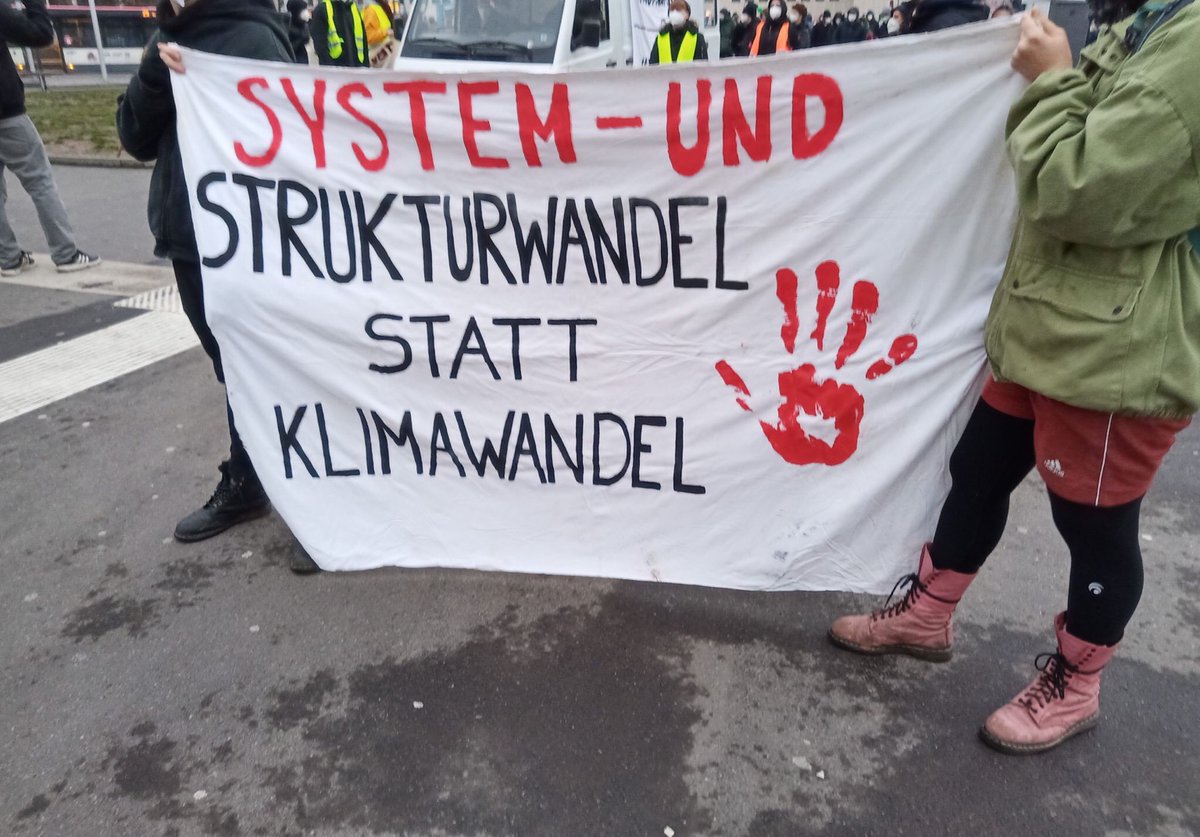 SYSTEM-UND
STRUKTURWANDEL
STATT
KLIMAWANDEL